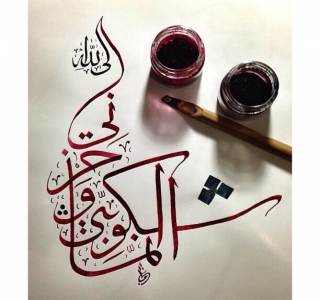 انما اشكو بثي وحزني
الى الله